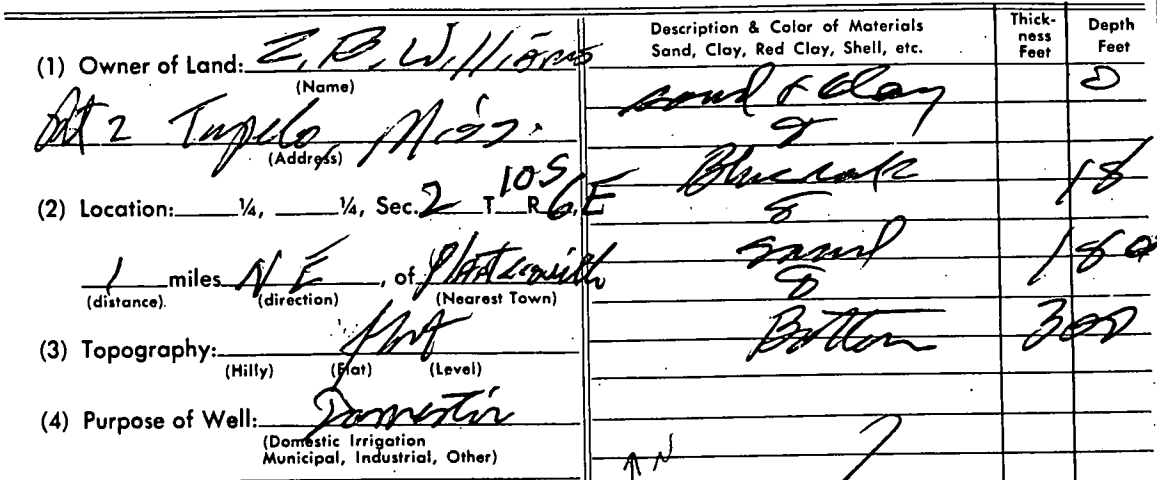 (1) Owner of Land: Z. B. Williams
(Name)
Rt 2 Tupelo, Miss.
(Address)
(2) Location: ¼, ¼, Sec. 2 T 10S R 6E
1 miles NE, of Plattsville
(distance) (direction) (Nearest Town)
(3) Topography: flat
(Hilly) (Flat) (Level)
(4) Purpose of Well: Domestic
(Domestic Irrigation
Municipal, Industrial, Other)
Description & Color of Materials
Sand, Clay, Red Clay, Shell, etc.
Thick-
ness
Feet
Depth
Feet
sand & Clay 0
Blue rock 18
sand 180
Bottom 300
N